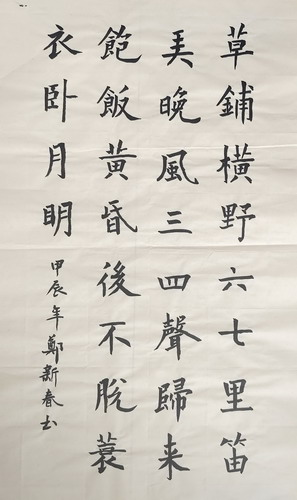 草鋪橫野六七里笛
弄晚風三四聲歸来
飽飯黃昏後不脫蓑
衣卧月明
甲辰年鄭新春书